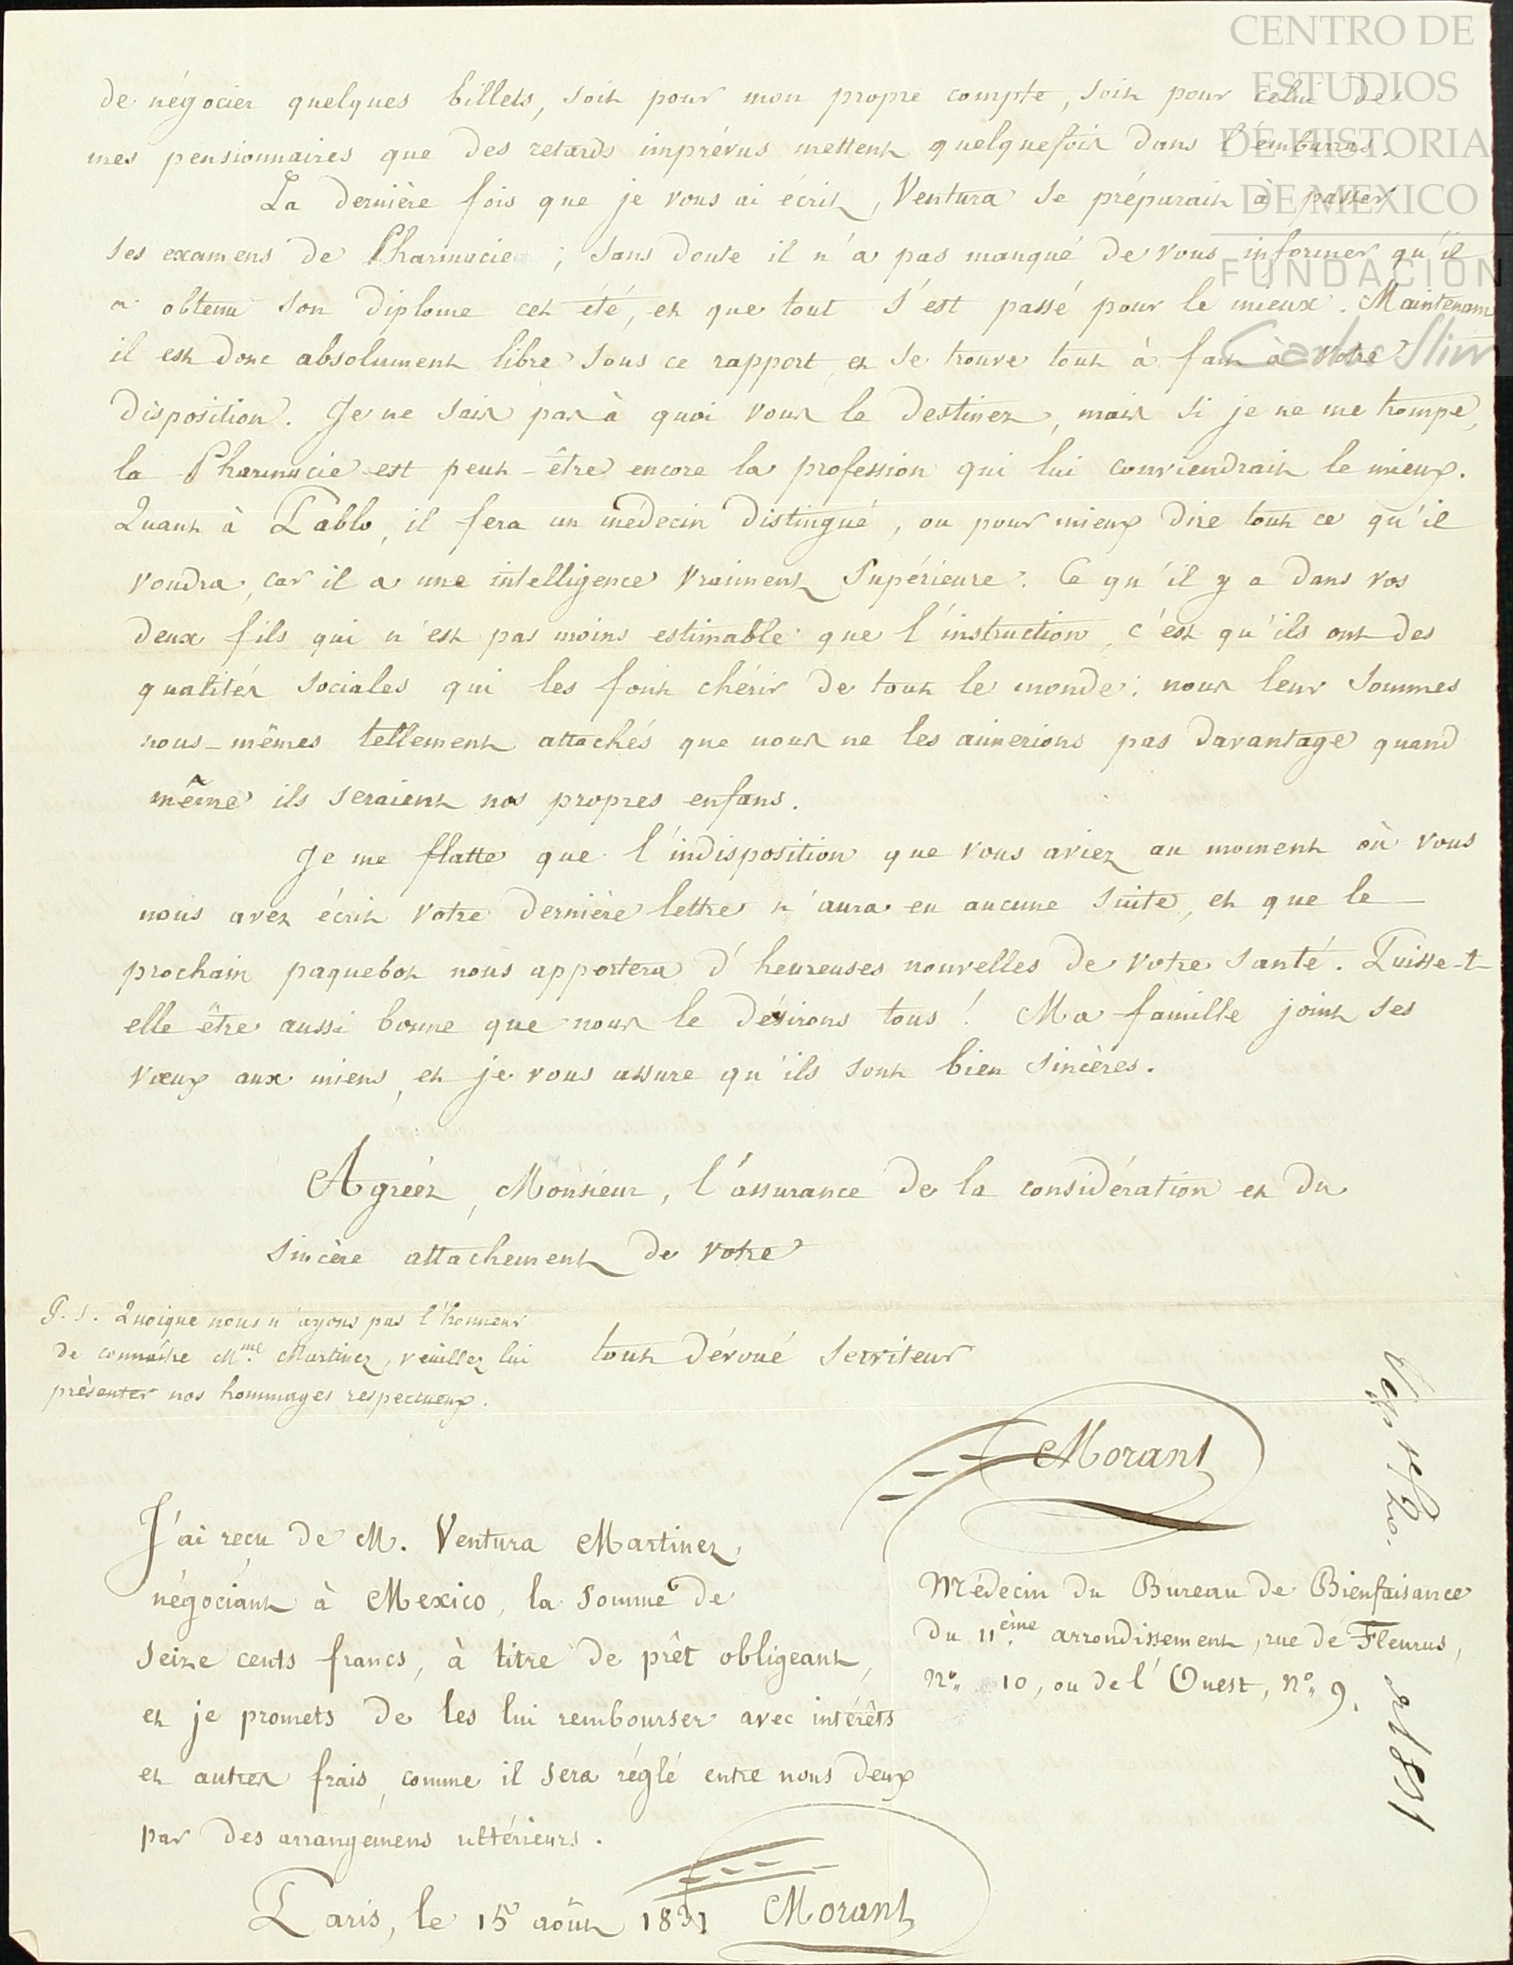 de négocier quelques billets, soit pour mon propre compte, soit pour celui de
mes pensionnaires que des retards imprévus mettent quelquefois dans l'embarras.
La dernière fois que je vous ai écrit, Ventura se préparait à passer
ses examens de Pharmacie ; sans doute il n'a pas manqué de vous informer qu'il
a obtenu son diplome cet été, et que tout s'est passé pour le mieux. Maintenant
il est donc absolument libre sous ce rapport et se trouve tout à fait à votre
disposition. Je ne sais pas à quoi vous le destinez, mais si je ne me trompe,
la Pharmacie est peut-être encore la profession qui lui conviendrait le mieux.
Quant à Pablo, il fera un médecin distingué, ou pour mieux dire tout ce qu'il
voudra, car il a une intelligence vraiment supérieure. Ce qu'il y a dans vos
deux fils qui n'est pas moins estimable que l'instruction, c'est qu'ils ont des
qualités sociales qui les font chérir de tout le monde : nous leur sommes
nous-mêmes tellement attachés que nous ne les aimerions pas davantage quand
même ils seraient nos propres enfans.
Je me flatte que l'indisposition que vous aviez au moment où vous
nous avez écrit votre dernière lettre n'aura eu aucune suite, et que le
prochain paquebot nous apportera d'heureuses nouvelles de votre santé. Puisse-t-
elle être aussi bonne que nous le désirons tous ! Ma famille joint ses
vœux aux miens, et je vous assure qu'ils sont bien sincères.
Agréez, Monsieur, l'assurance de la considération et du
sincère attachement de votre
tout dévoué serviteur
Morant
P. S. Quoique nous n'ayons pas l'honneur
de connaître Mme Martinez, veuillez lui
présenter nos hommages respectueux.
Médecin du Bureau de Bienfaisance
du 11ème arrondissement, rue de Fleurus,
No. 10, ou de l'Ouest, No. 9.
J'ai reçu de M. Ventura Martinez,
négociant à Mexico, la somme de
seize cents francs, à titre de prêt obligeant,
et je promets de les lui rembourser avec intérêts
et autres frais, comme il sera réglé entre nous deux
par des arrangemens ultérieurs.
Paris, le 15 août 1831 Morant
CENTRO DE
ESTUDIOS
DE HISTORIA
DE MEXICO
FUNDACIÓN
Carlos Slim